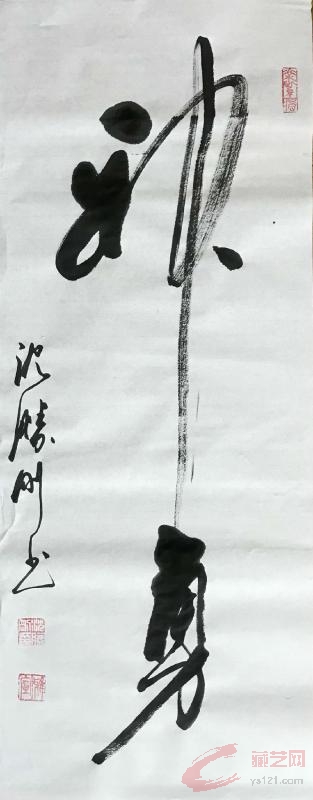 神勇
沈勝刚书
藏艺网
ys121.com